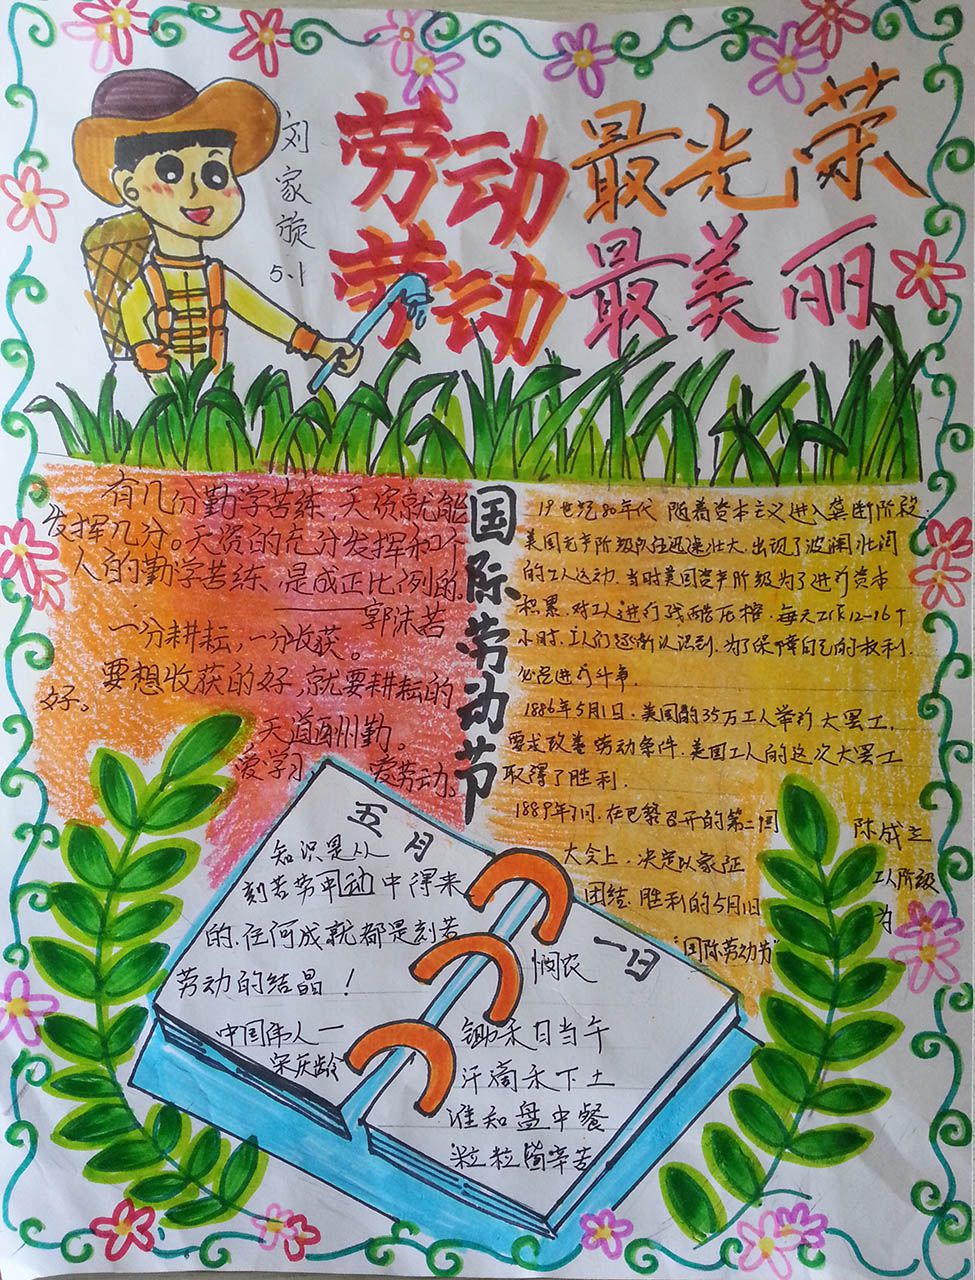 劳动最光荣
劳动最美丽
刘家旋
5.1
有几分勤学苦练,天资就能
发挥几分。天资的充分发挥和个
人的勤学苦练,是成正比例的。
——郭沫若
一分耕耘,一分收获。
要想收获的好,就要耕耘的
好。
天道酬勤。
爱学习, 爱劳动。
国际劳动节
19世纪80年代,随着资本主义进入垄断阶段,
美国无产阶级队伍迅速壮大,出现了波澜壮阔
的工人运动。当时美国资产阶级为了进行资本
积累,对工人进行残酷压榨,每天工作12-16个
小时,工人们逐渐认识到,为了保障自己的权利,
必须进行斗争。
1886年5月1日,美国的35万工人举行大罢工,
要求改善劳动条件,美国工人的这次大罢工
取得了胜利.
1889年7月,在巴黎召开的第二国 际成立
大会上,决定以象征 工人阶级
团结、胜利的5月1日 为
"国际劳动节"
五月
知识是从
刻苦劳动中得来
的,任何成就都是刻苦
劳动的结晶!
中国伟人—
宋庆龄
一日
悯农
锄禾日当午
汗滴禾下土
谁知盘中餐
粒粒皆辛苦